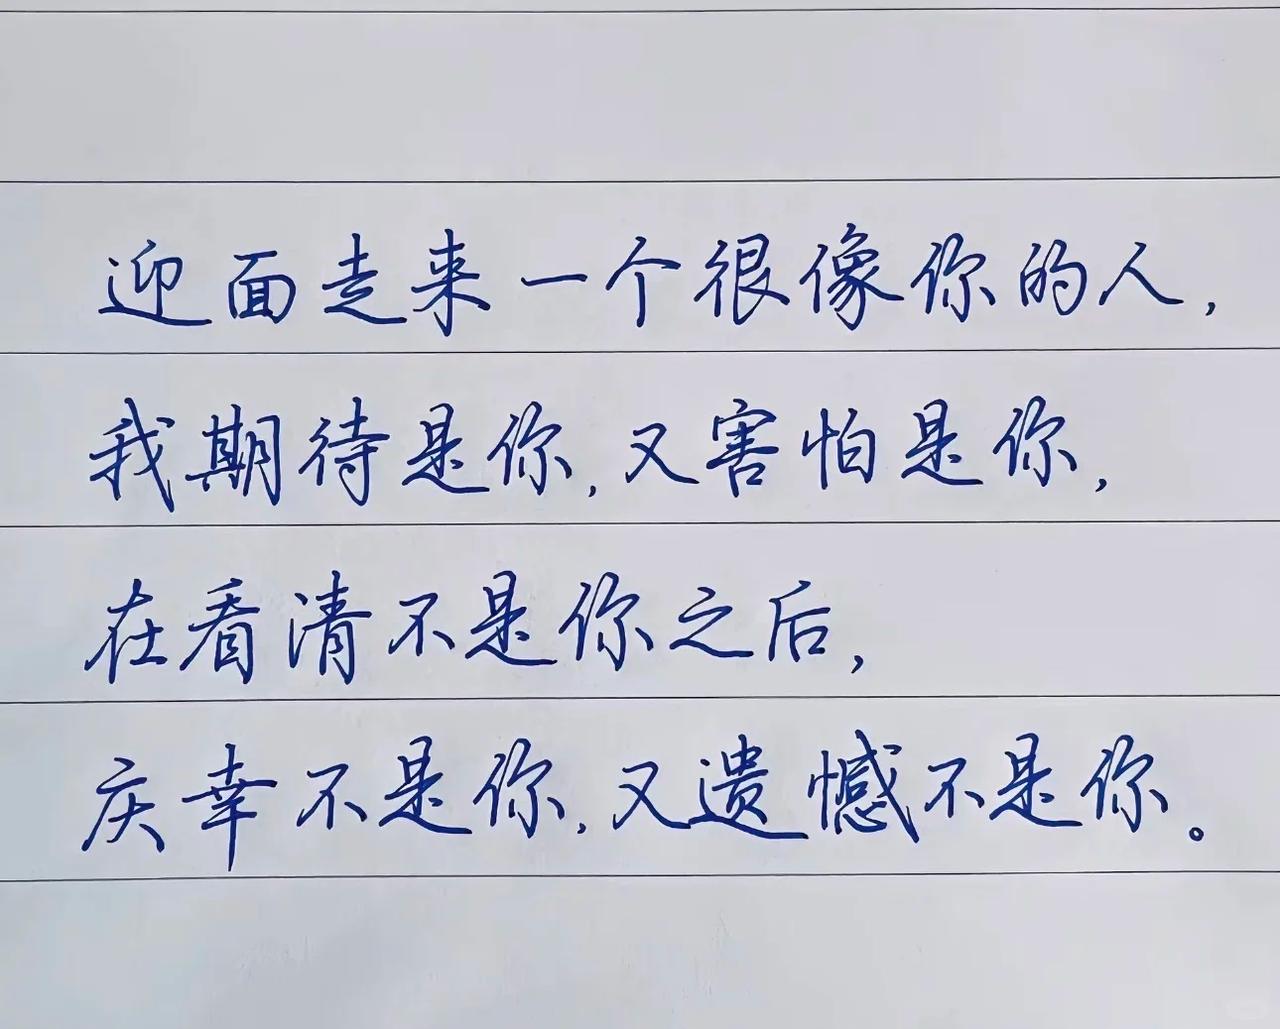 迎面走来一个很像你的人，
我期待是你，又害怕是你，
在看清不是你之后，
庆幸不是你，又遗憾不是你。